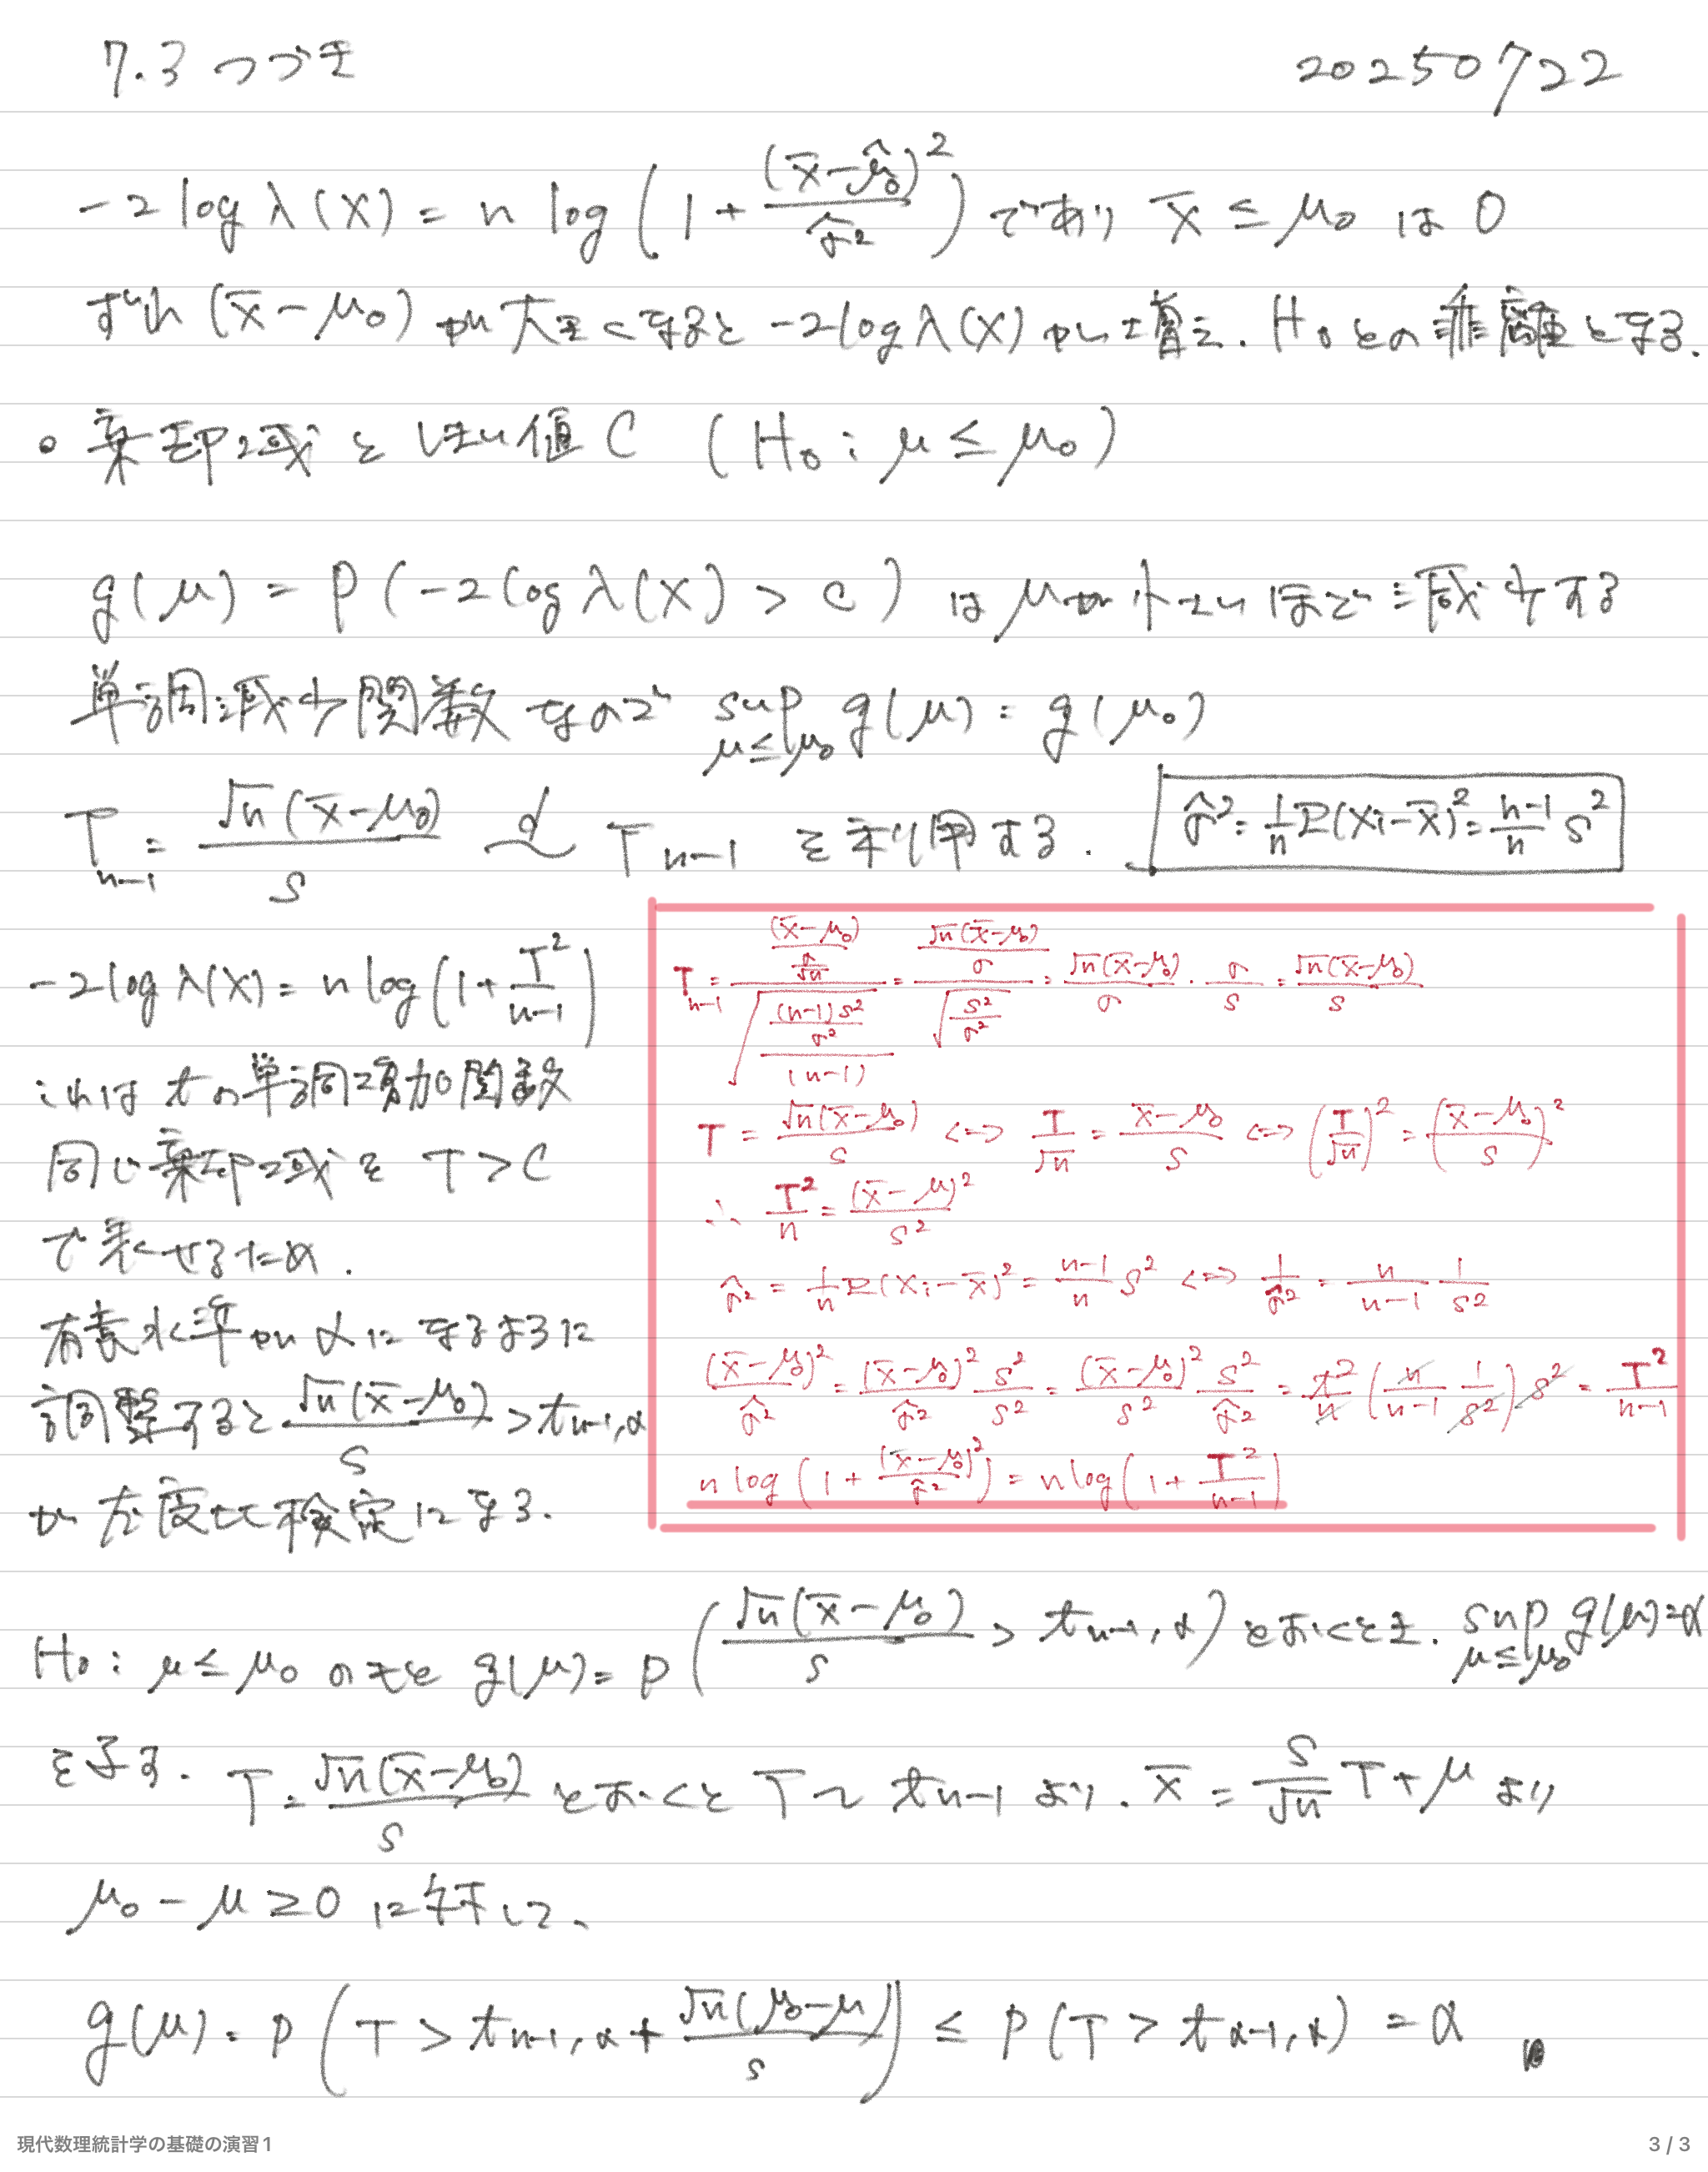 7.3 つづき 20250722
-2 log λ(X) = n log (1 + (x̄-μ̂₀)²/σ̂²) であり x̄ ≤ μ₀ は 0
ずれ (x̄ - μ₀) が大きくなると -2 log λ(X) が増え、H₀との乖離となる.
○ 棄却域としきい値 C (H₀ : μ ≤ μ₀)
g(μ) = P(-2 log λ(X) > C) は μが小さいほど減少する
単調減少関数なので sup_{μ≤μ₀} g(μ) = g(μ₀)
T_{n-1} = √n(x̄-μ₀)/s ~ᵈ T_{n-1} を利用する. σ̂² = 1/n Σ(Xi-x̄)² = n-1/n s²
-2 log λ(X) = n log (1 + T²/n-1)
これは tの単調増加関数
同じ棄却域を T > C
で表せるため.
有意水準が αになるように
調整すると √n(x̄-μ₀)/s > t_{n-1,α}
が尤度比検定になる.
T_{n-1} = ((x̄-μ₀)/(σ/√n)) / √(((n-1)s²/σ²)/(n-1)) = (√n(x̄-μ₀)/σ) / √(s²/σ²) = √n(x̄-μ₀)/σ · σ/s = √n(x̄-μ₀)/s
T = √n(x̄-μ₀)/s ⟺ T/√n = x̄-μ₀/s ⟺ (T/√n)² = (x̄-μ₀/s)²
∴ T²/n = (x̄-μ)²/s²
σ̂² = 1/n Σ(Xi-x̄)² = n-1/n s² ⟺ 1/σ̂² = n/n-1 1/s²
(x̄-μ₀)²/σ̂² = (x̄-μ₀)²/σ̂² s²/s² = (x̄-μ₀)²/s² s²/σ̂² = t²/n (n/n-1 1/s²) s² = T²/n-1
n log (1 + (x̄-μ₀)²/σ̂²) = n log (1 + T²/n-1)
H₀ : μ ≤ μ₀ のもと g(μ) = P(√n(x̄-μ₀)/s > t_{n-1,α}) とおくとき. sup_{μ≤μ₀} g(μ) = α
を示す. T = √n(x̄-μ₀)/s とおくと T ~ t_{n-1} より. x̄ = s/√n T + μ より
μ₀ - μ ≥ 0 に対して、
g(μ) = P(T > t_{n-1,α} + √n(μ₀-μ)/s) ≤ P(T > t_{α-1,α}) = α
現代数理統計学の基礎の演習1 3 / 3